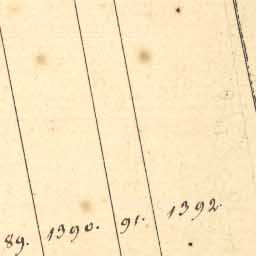 89. 1390. 91. 1392.